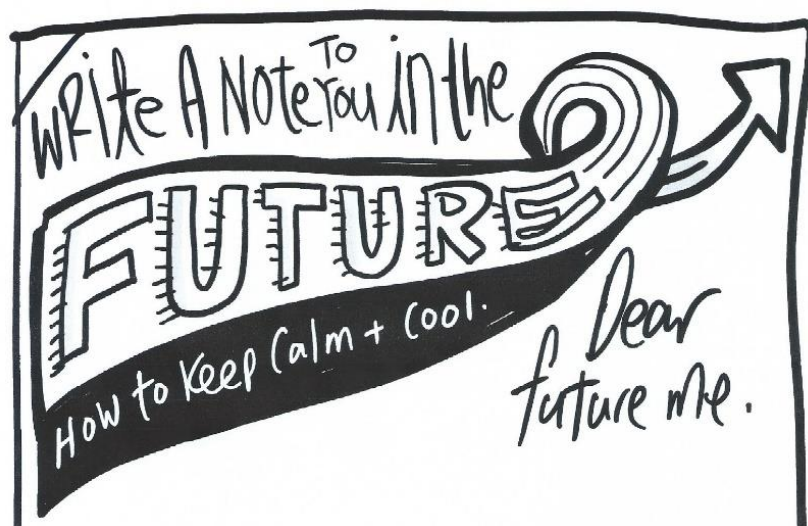 Write A Note To You in the
FUTURE
How to Keep Calm + Cool.
Dear
future me.